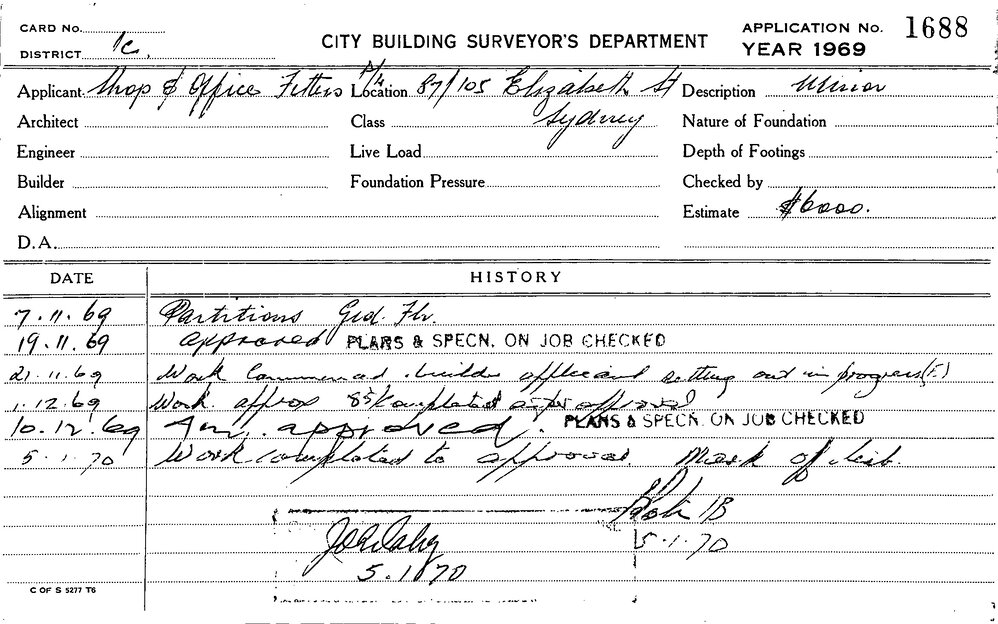 CARD NO.
DISTRICT 1c,
CITY BUILDING SURVEYOR'S DEPARTMENT
APPLICATION NO. 1688
YEAR 1969
Applicant Shop & Office Fitters P/L Location 87/105 Elizabeth St Description Minor
Architect Class Sydney Nature of Foundation
Engineer Live Load Depth of Footings
Builder Foundation Pressure Checked by
Alignment Estimate $6000.
D.A.
DATE HISTORY
7.11.69 Partitions Grd. Flr.
19.11.69 approved PLANS & SPECN. ON JOB CHECKED
21.11.69 Work Commenced builder applicant setting out in progress
1.12.69 Work approx 85% completed as per approval
10.12.69 Am. approved. PLANS & SPECN. ON JOB CHECKED
5.1.70 Work completed to approval Mark of
IB
5.1.70
5.1.70
C OF S 5277 T6